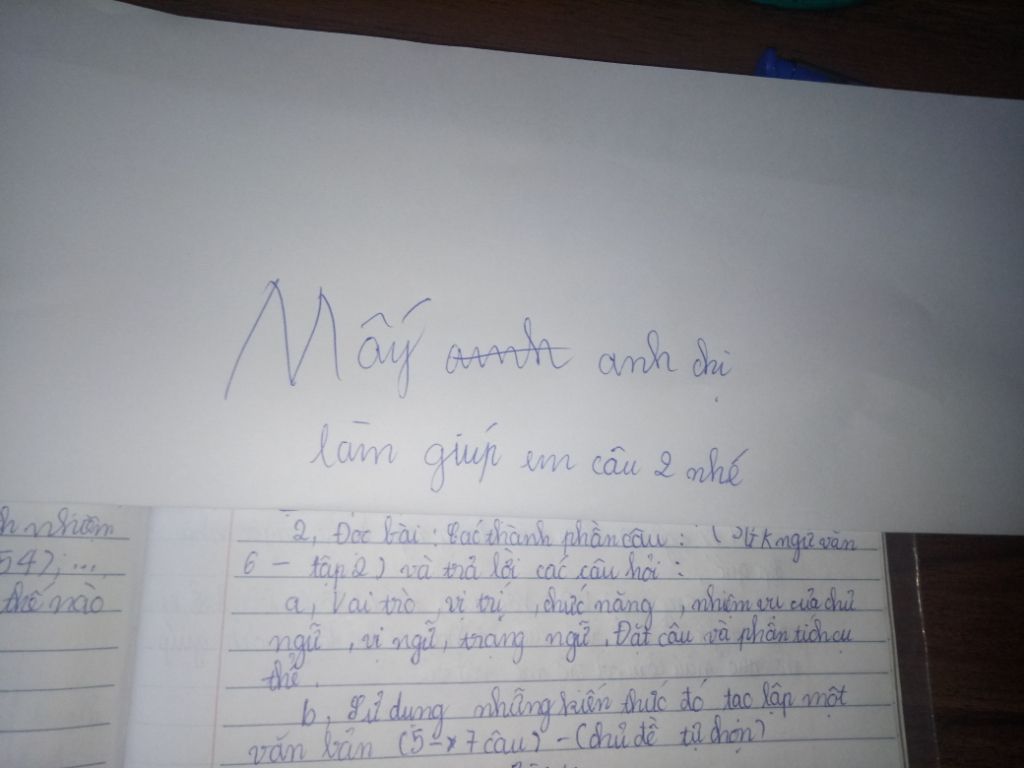 Mấy anh anh chị
làm giúp em câu 2 nhé
h nhiệm
54); ...
thế nào
2, Đọc bài: Các thành phần câu: ( SGK ngữ văn
6 - tập 2) và trả lời các câu hỏi:
a, Vai trò, vị trí, chức năng, nhiệm vụ của chủ
ngữ, vị ngữ, trạng ngữ. Đặt câu và phân tích cụ
thể.
b, Sử dụng những kiến thức đó tạo lập một
văn bản (5 -> 7 câu) - (chủ đề tự chọn)